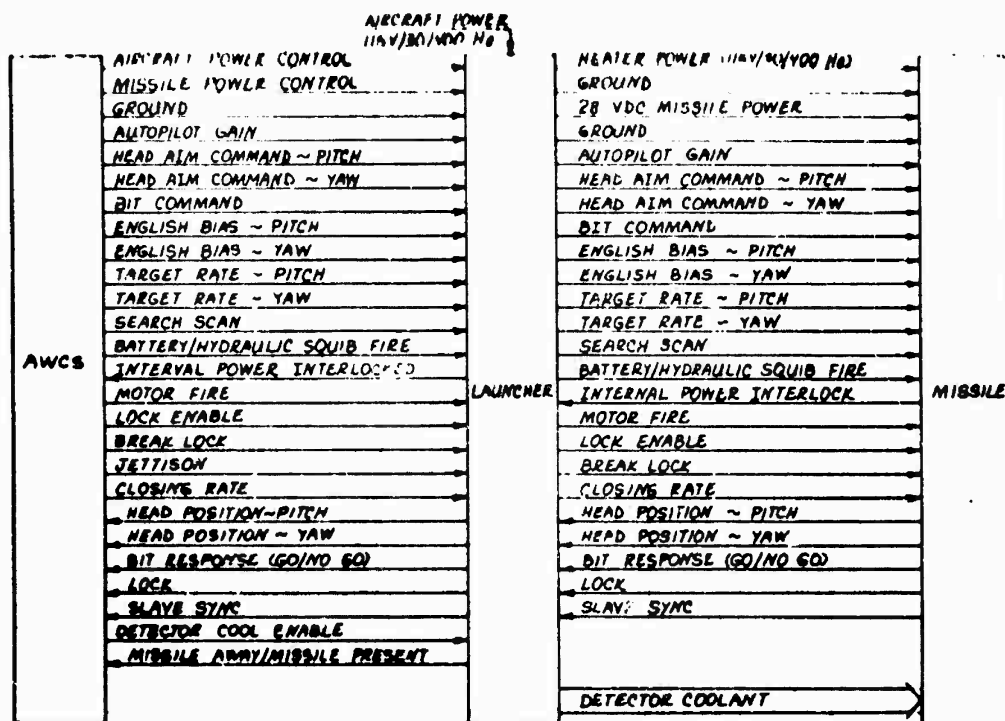 AIRCRAFT POWER
115V/3Ø/400 Hz
AIRCRAFT POWER CONTROL
MISSILE POWER CONTROL
GROUND
AUTOPILOT GAIN
HEAD AIM COMMAND ~ PITCH
HEAD AIM COMMAND ~ YAW
BIT COMMAND
ENGLISH BIAS ~ PITCH
ENGLISH BIAS ~ YAW
TARGET RATE ~ PITCH
TARGET RATE ~ YAW
SEARCH SCAN
BATTERY/HYDRAULIC SQUIB FIRE
INTERVAL POWER INTERLOCKED
MOTOR FIRE
LOCK ENABLE
BREAK LOCK
JETTISON
CLOSING RATE
HEAD POSITION~PITCH
HEAD POSITION ~ YAW
BIT RESPONSE (GO/NO GO)
LOCK
SLAVE SYNC
DETECTOR COOL ENABLE
MISSILE AWAY/MISSILE PRESENT
AWCS
LAUNCHER
HEATER POWER (115V/3Ø/400 Hz)
GROUND
28 VDC MISSILE POWER
GROUND
AUTOPILOT GAIN
HEAD AIM COMMAND ~ PITCH
HEAD AIM COMMAND ~ YAW
BIT COMMAND
ENGLISH BIAS ~ PITCH
ENGLISH BIAS ~ YAW
TARGET RATE ~ PITCH
TARGET RATE ~ YAW
SEARCH SCAN
BATTERY/HYDRAULIC SQUIB FIRE
INTERNAL POWER INTERLOCK
MOTOR FIRE
LOCK ENABLE
BREAK LOCK
CLOSING RATE
HEAD POSITION ~ PITCH
HEAD POSITION ~ YAW
BIT RESPONSE (GO/NO GO)
LOCK
SLAVE SYNC
DETECTOR COOLANT
MISSILE